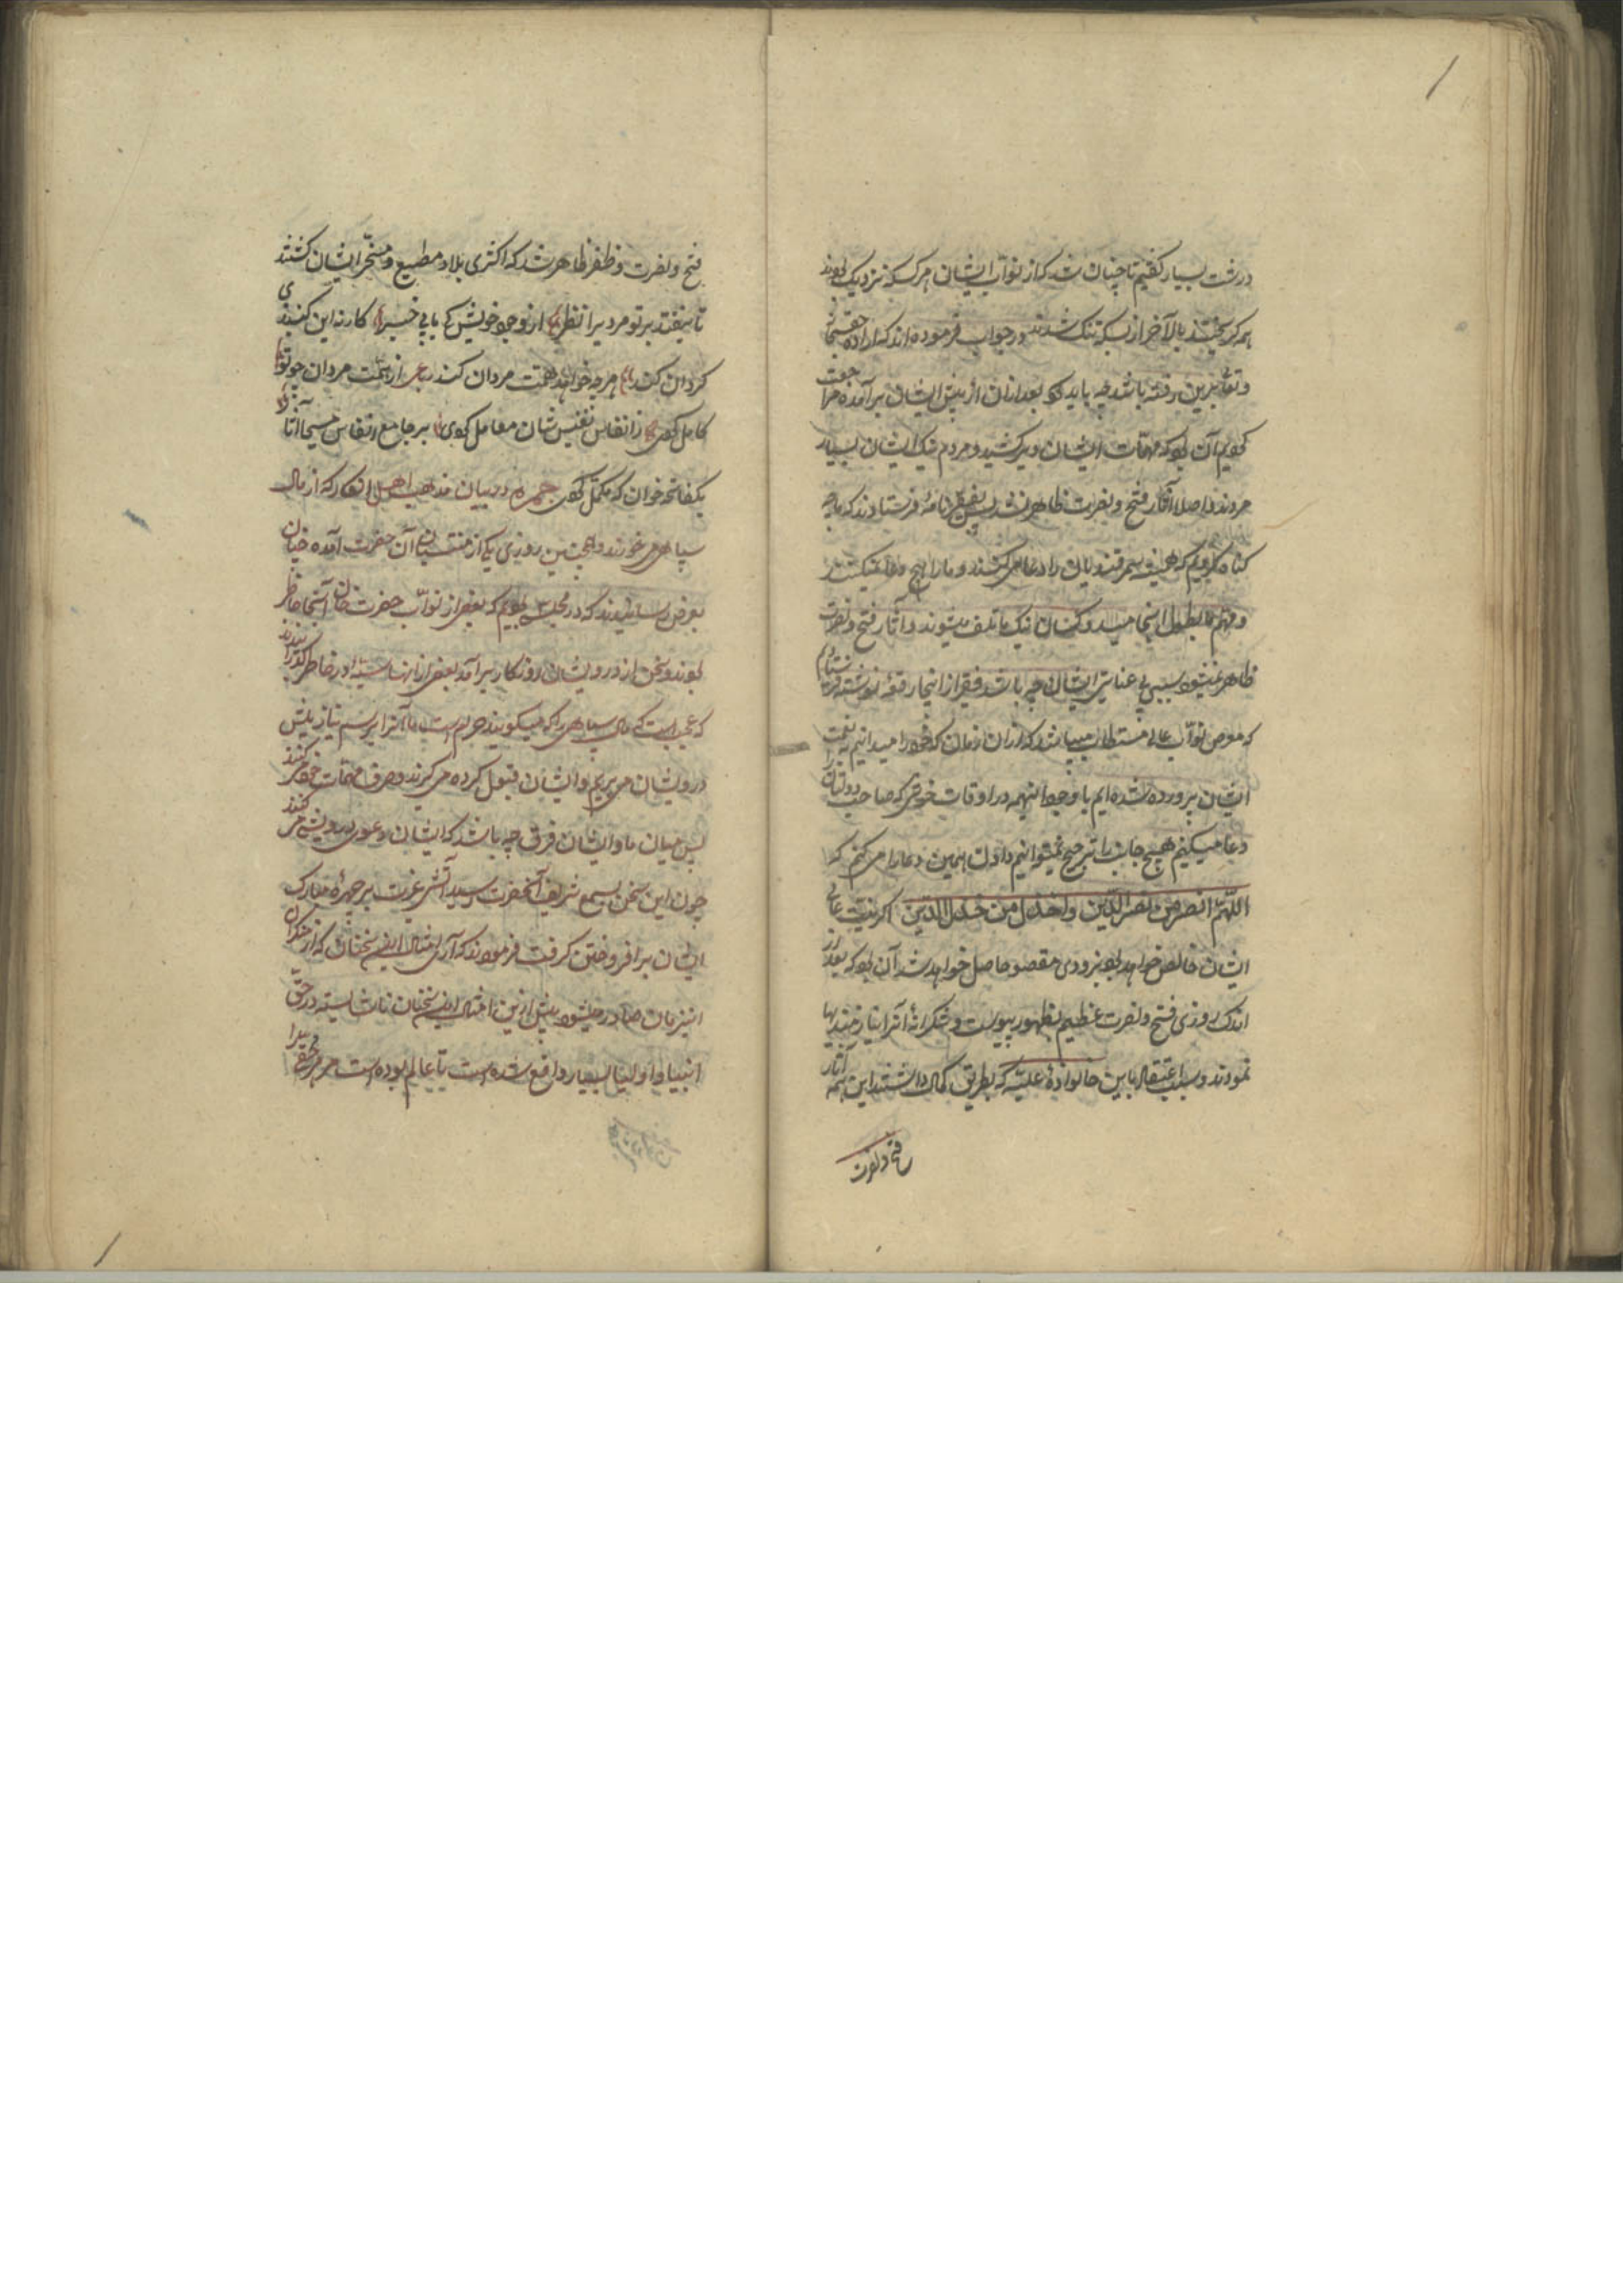 درشت بسیار گفتیم تا چنان شد که از نواب ایشان هر کسکه نزدیک بودند
همه گریختند بالآخر از بسکه تنک شدند در جواب فرموده اند که اراده حقسبحانه
و تعالی برین رفته باشد چه باید کرد بعد از آن از پیش ایشان برآمده مراجعت
کردیم آن بود که مهمات ایشان دیر کشید و مردم نیک ایشان بسیار
مردند و اصلا آثار فتح و نصرت ظاهر نشد پس بفقیر نامه فرستادند که ما چه
گناه کردیم که همیشه سمرقندیان را دعا می کنند و ما را هیچ دعا نمیکنند
و مهم ما بطول انجامید و کسان نیک ما تلف میشوند و آثار فتح و نصرت
ظاهر نمیشود سبب بی عنایتی ایشان چه باشد فقیر از اینجا رقعه نوشته فرستادم
که معروض نواب عالی مستطاب میباشد که از آن زمان که خود را میدانیم به نعمت
ایشان پرورده شده ایم با وجود اینهمه در اوقات خوش که صاحب دولتان را
دعا میکنیم هیچ جانب را ترجیح نمیتوانیم داد لیکن همین دعا را می کنم که
اللهم انصر من نصر الدین واخذل من خذل الدین اگر نیت عالی
ایشان خالص خواهد بود بزودی مقصود حاصل خواهد شد آن بود که بعد از
اندک روزی فتح و نصرت عظیم بظهور پیوست و شکرانه آنرا نیازمندیها
نمودند و سبب اعتقاد باین خانواده علیه که بطریق کمال داشتند این همه آثار
فتح و نصرت
فتح و نصرت و ظفر ظاهر شد که اکثری بلاد مطیع و مسخر ایشان گشتند
تا نیفتد بر تو مردی را نظر از وجود خویش کی یابی خبر کار نه این گنبد
گردان کند هر چه خواهد همت مردان کند از همت مردان چو توانا
کامل گردی ز انفاس نفیس شان معامل گردی بر جامع انفاس مسیحا آثار
یکفاتحه خوان که مکمل گردی در بیان مذهب اهل انکار که از مال
سپاهی می خورند و همچنین روزی یکی از منتسبان آن حضرت آمده چنان
بعرض رسانیدند که در مجلسی بودیم که بعضی از نواب حضرت خان آنجا حاضر
بودند و سخن از درویشان روزگار برآمد بعضی از آنها در خاطر گذرانیدند
که عجب است که مال سپاهی را که میگویند حرام است ما آنرا برسم نیاز پیش
درویشان می بریم و ایشان قبول کرده می گیرند و صرف مهمات خود می کنند
پس میان ما و ایشان فرق چه باشد که ایشان دعوی درویشی می کنند
چون این سخن بسمع شریف آنحضرت رسید آتش غیرت بر چهره مبارک
ایشان برافروختن گرفت فرمودند که آری امثال این سخنان که از منکران
این زمان صادر میشود پیش ازین امثال این سخنان ناشایسته در حق
انبیا و اولیا بسیار واقع شده است تا عالم بوده است هر محقی را